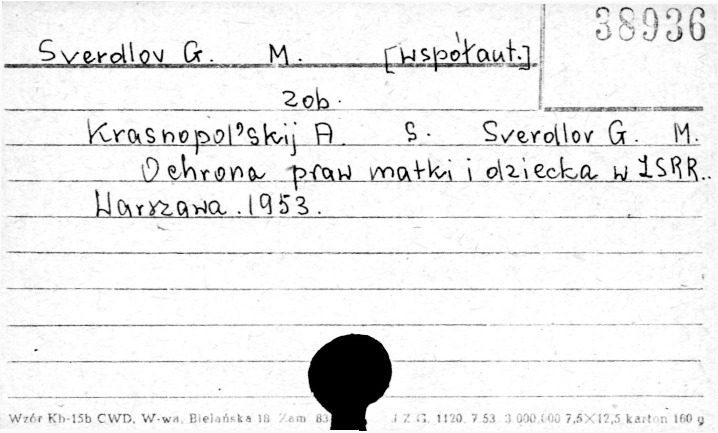 38936
Sverdlov G. M. [współaut.]
zob.
Krasnopol'skij A. S. Sverdlov G. M.
Ochrona praw matki i dziecka w ZSRR..
Warszawa. 1953.
Wzór Kb-15b CWD, W-wa, Bielańska 18 Zam 83 Z G. 1120. 7.53 3 000.000 7,5×12,5 karton 160 g